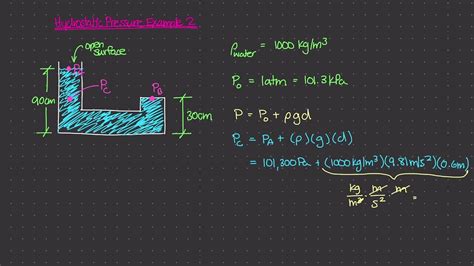 Hydrostatic Pressure Example 2
open
surface
P_A
P_C
P_B
90cm
30cm
ρ_water = 1000 kg/m³
P₀ = 1atm = 101.3 kPa
P = P₀ + ρgd
P_C = P_A + (ρ)(g)(d)
= 101,300Pa + (1000kg/m³)(9.81m/s²)(0.6m)
kg/m³ · m/s² · m =